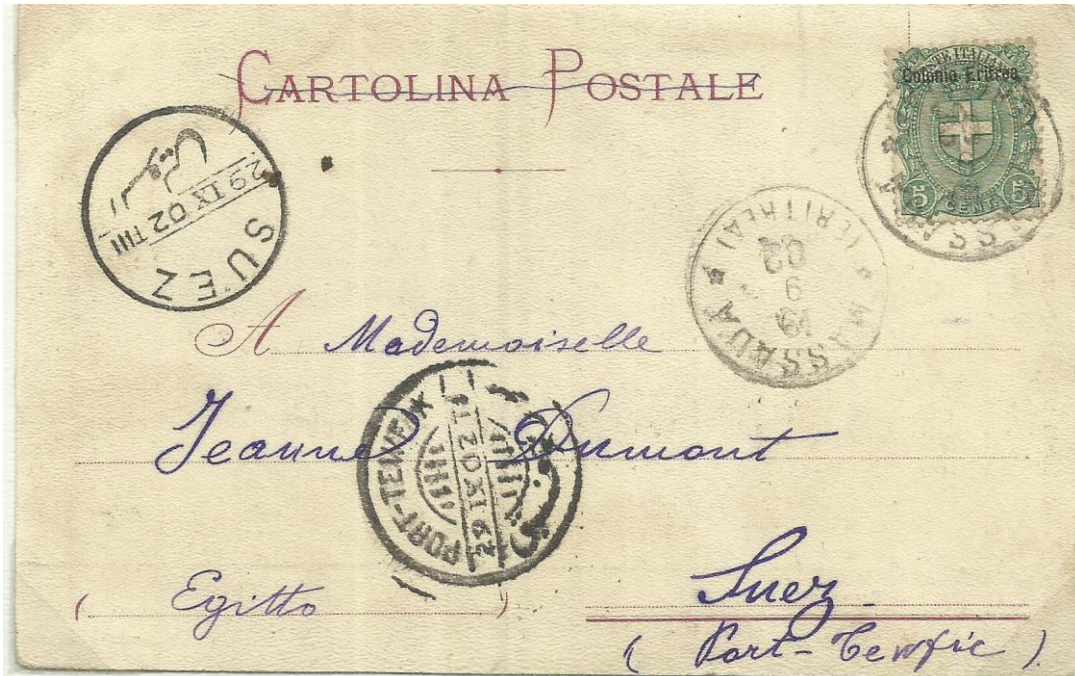 CARTOLINA POSTALE
POSTE ITALIANE
Colonia Eritrea
5 CENT. 5
MASSAUA
السويس
29 IX 02
SUEZ
MASSAUA
(ERITREA)
19
9
02
A Mademoiselle
Jeanne Dumont
PORT-TEWFIK
29 IX 02
( Egitto )
Suez
( Port-Tewfic ).